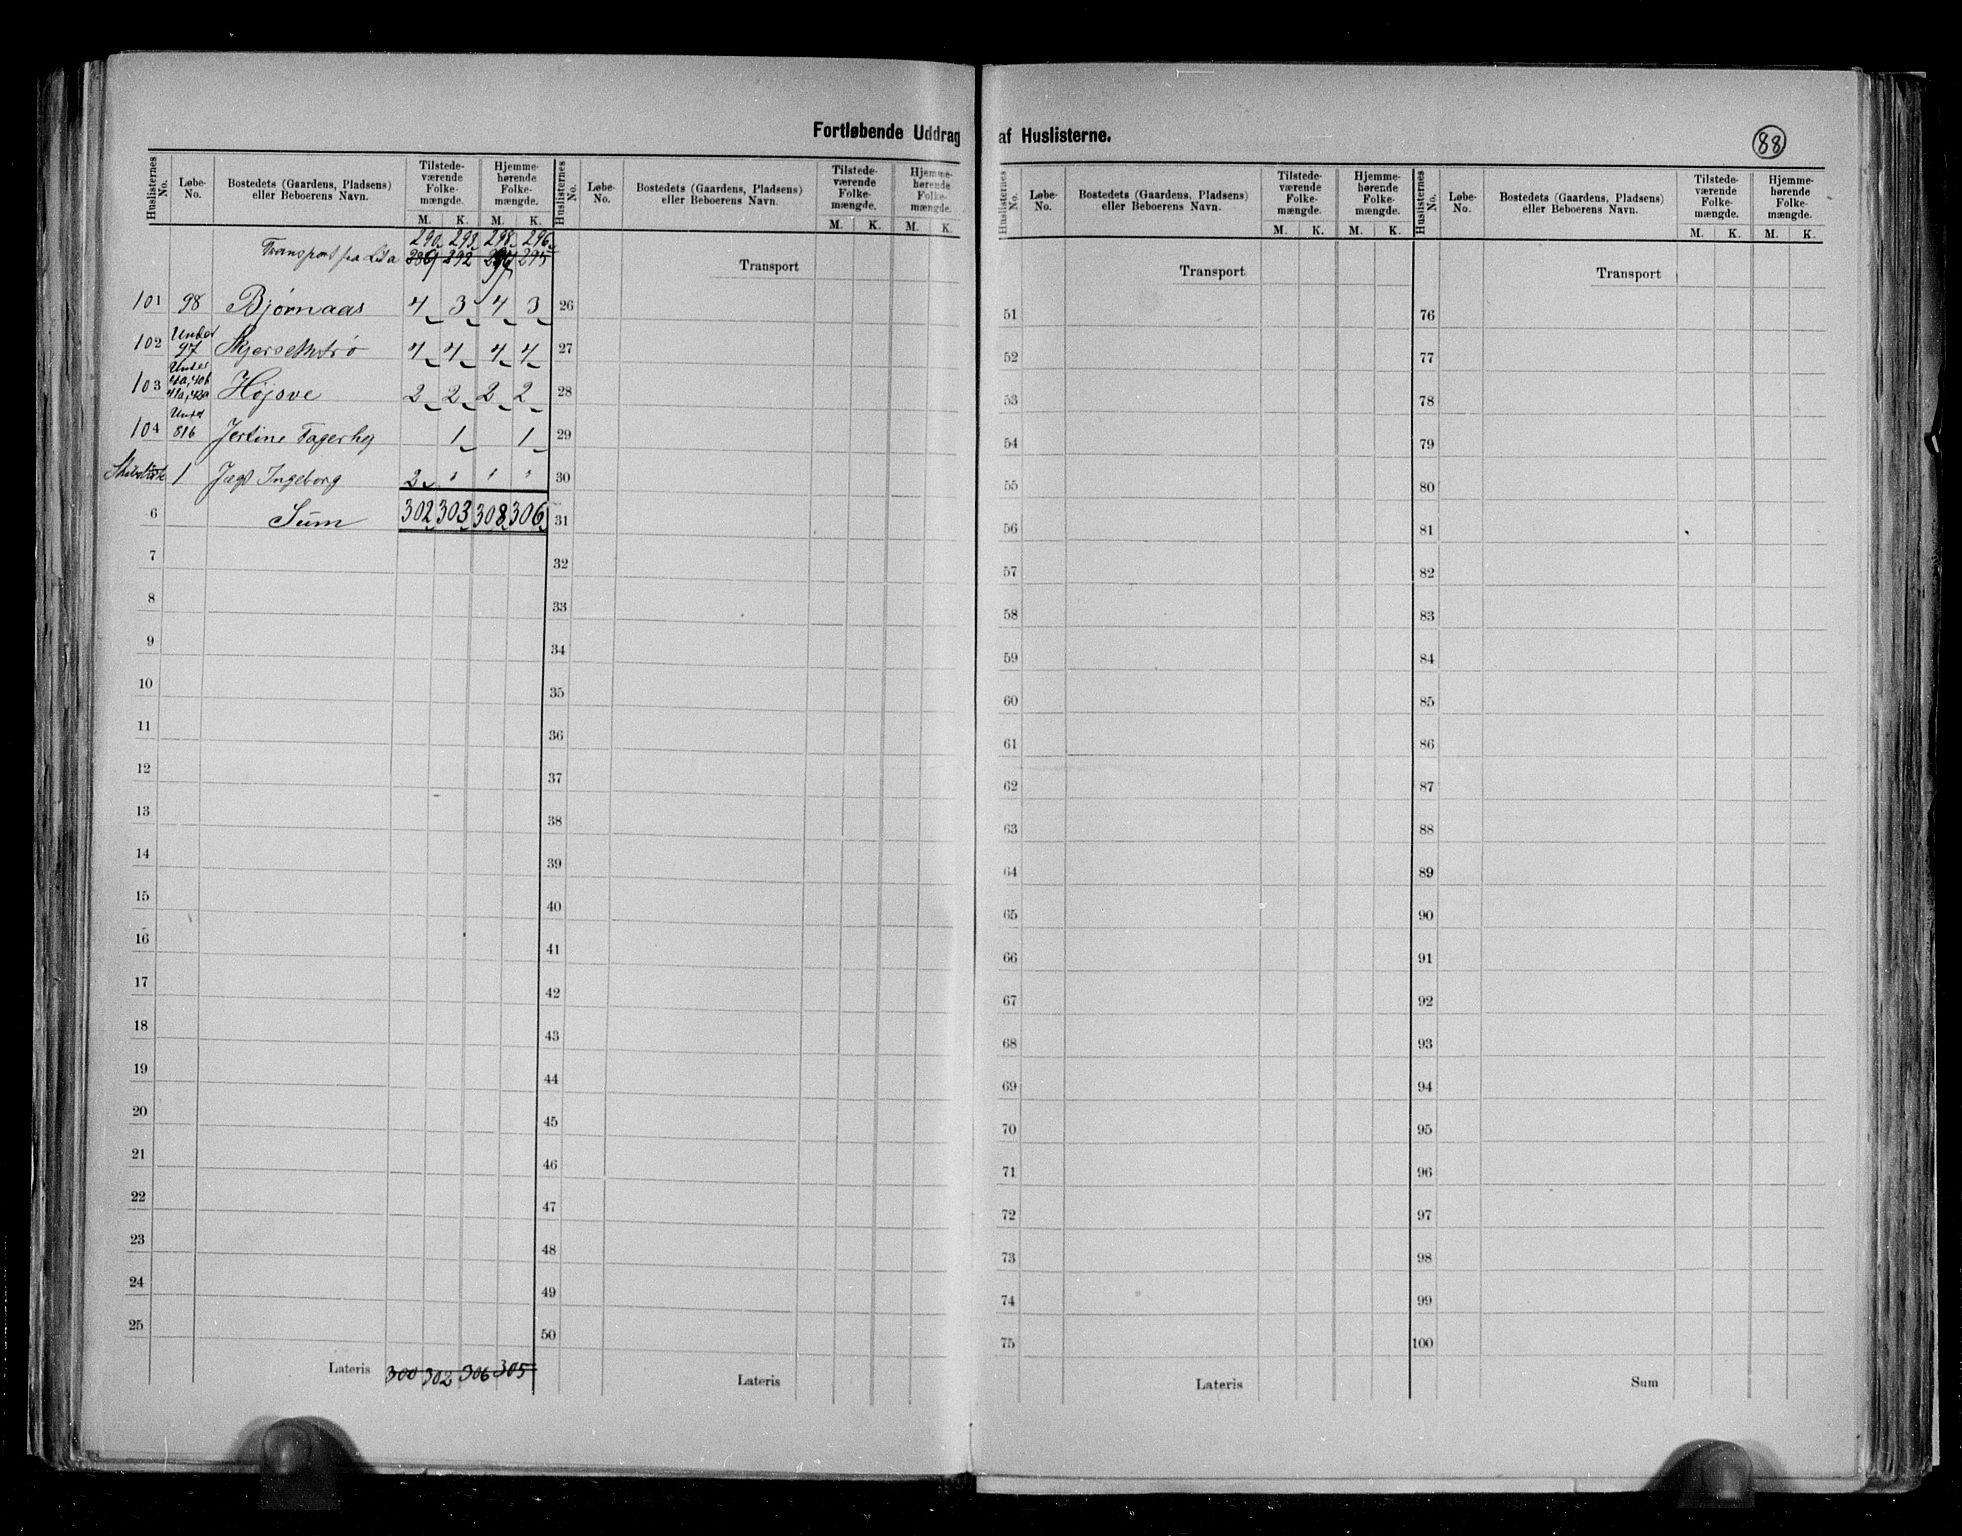 Fortløbende Uddrag af Huslisterne.
88
Huslisternes No. Løbe-No. Bostedets (Gaardens, Pladsens) eller Beboerens Navn. Tilstedeværende Folkemængde. M. K. Hjemmehørende Folkemængde. M. K.
290 293 298 296
Transport fra 292 295
101 98 Bjørnaas 4 3 4 3
102 Under 97 4 4 4 4
103 Under 41a, 42a Højsve 2 2 2 2
104 Under 816 Jertine Fagerhøj 1 1
1 Jægt Ingeborg 2 " " "
6 Sum 302 303 308 306
7
8
9
10
11
12
13
14
15
16
17
18
19
20
21
22
23
24
25
Lateris 300 302 306 305
Huslisternes No. Løbe-No. Bostedets (Gaardens, Pladsens) eller Beboerens Navn. Tilstedeværende Folkemængde. M. K. Hjemmehørende Folkemængde. M. K.
Transport
26
27
28
29
30
31
32
33
34
35
36
37
38
39
40
41
42
43
44
45
46
47
48
49
50
Lateris
Huslisternes No. Løbe-No. Bostedets (Gaardens, Pladsens) eller Beboerens Navn. Tilstedeværende Folkemængde. M. K. Hjemmehørende Folkemængde. M. K.
Transport
51
52
53
54
55
56
57
58
59
60
61
62
63
64
65
66
67
68
69
70
71
72
73
74
75
Lateris
Huslisternes No. Løbe-No. Bostedets (Gaardens, Pladsens) eller Beboerens Navn. Tilstedeværende Folkemængde. M. K. Hjemmehørende Folkemængde. M. K.
Transport
76
77
78
79
80
81
82
83
84
85
86
87
88
89
90
91
92
93
94
95
96
97
98
99
100
Sum